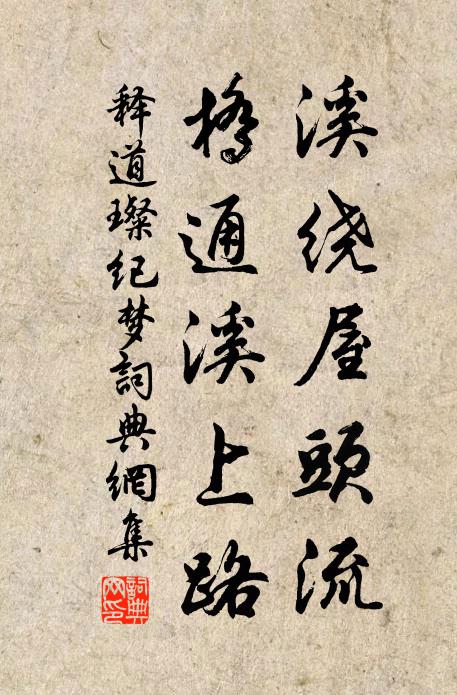 溪绕屋頭流
橋通溪上路
释道璨纪梦詞典網集
詞典
网印